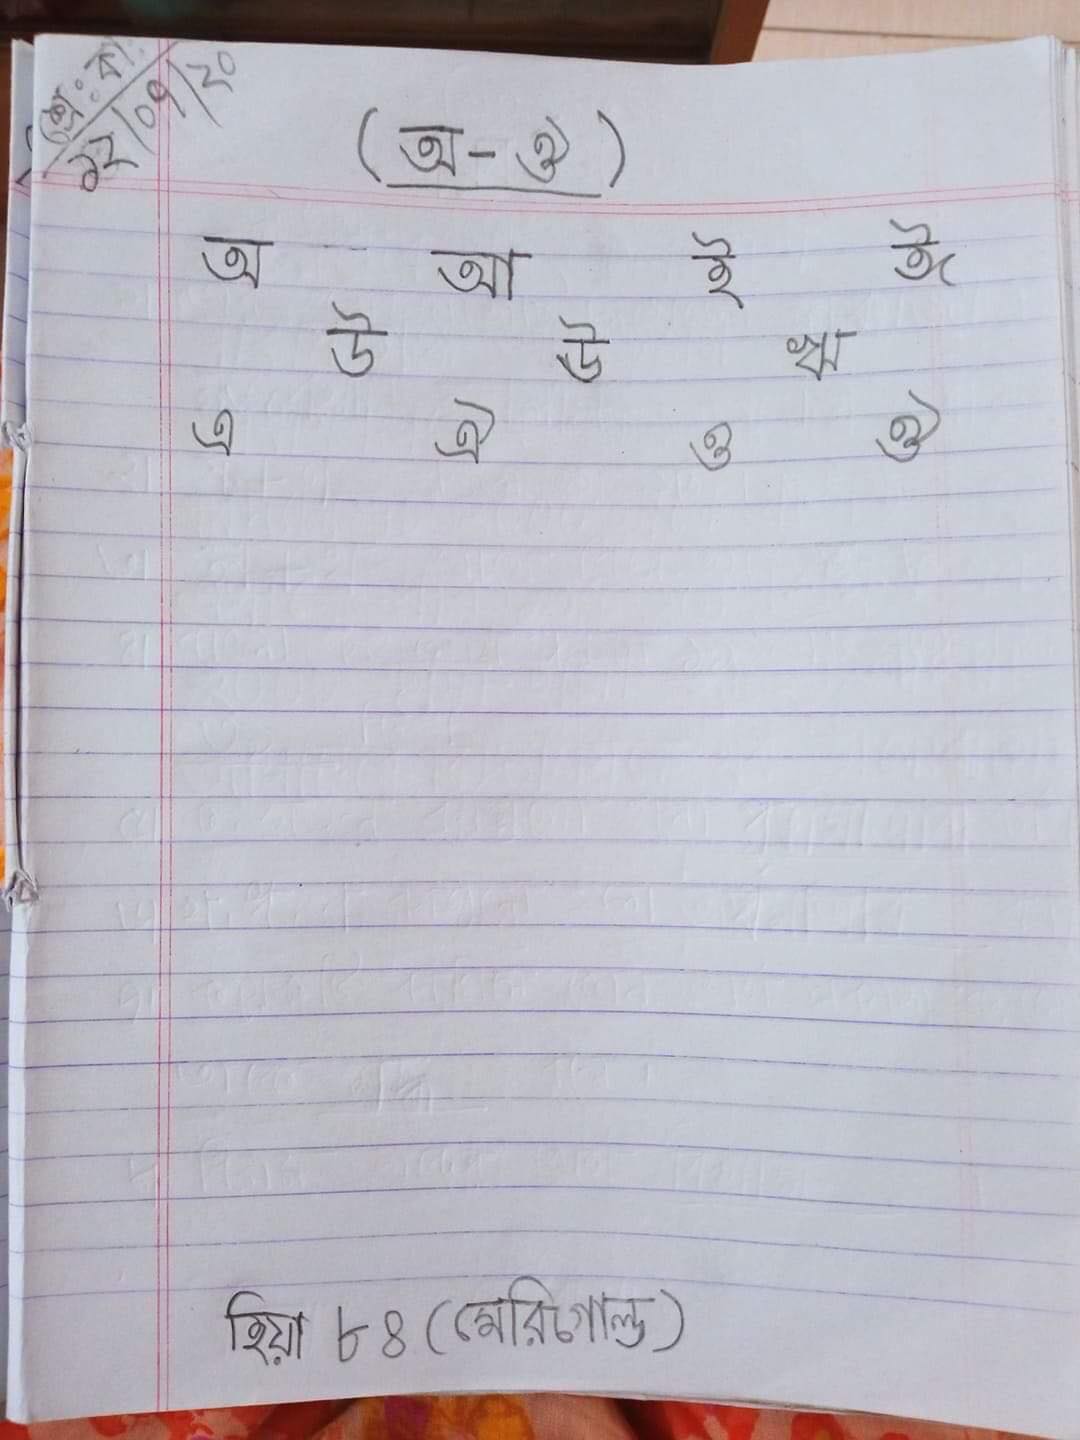 শ্রে: কা:
১২/০৭/২০
(অ - ঔ)
অ আ ই ঈ
উ ঊ ঋ
এ ঐ ও ঔ
হিয়া ৮৪ (মেরিগোল্ড)